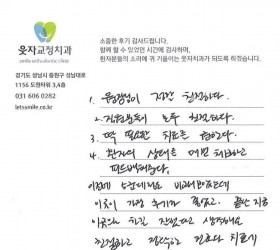 웃자교정치과
smile orthodontic clinic
경기도 성남시 중원구 성남대로
1156 도원타워 3,4층
031 606 0282
letssmile.co.kr
소중한 후기 감사드립니다.
함께 할 수 있었던 시간에 감사하며,
환자분들의 소리에 귀 기울이는 웃자치과가 되도록 하겠습니다.
1. 원장님이 정말 친절하다.
2. 직원분들이 모두 친절하다.
3. 딱 필요한 치료를 권한다.
4. 환자의 상태를 매번 체크하고
피드백해준다.
이전에 5군데정도 비교해봤는데
이곳이 가장 후기가 좋았고. 끝난 지금
이곳으로 하길 잘했다고 생각해요
친절하고 진료나 치료가